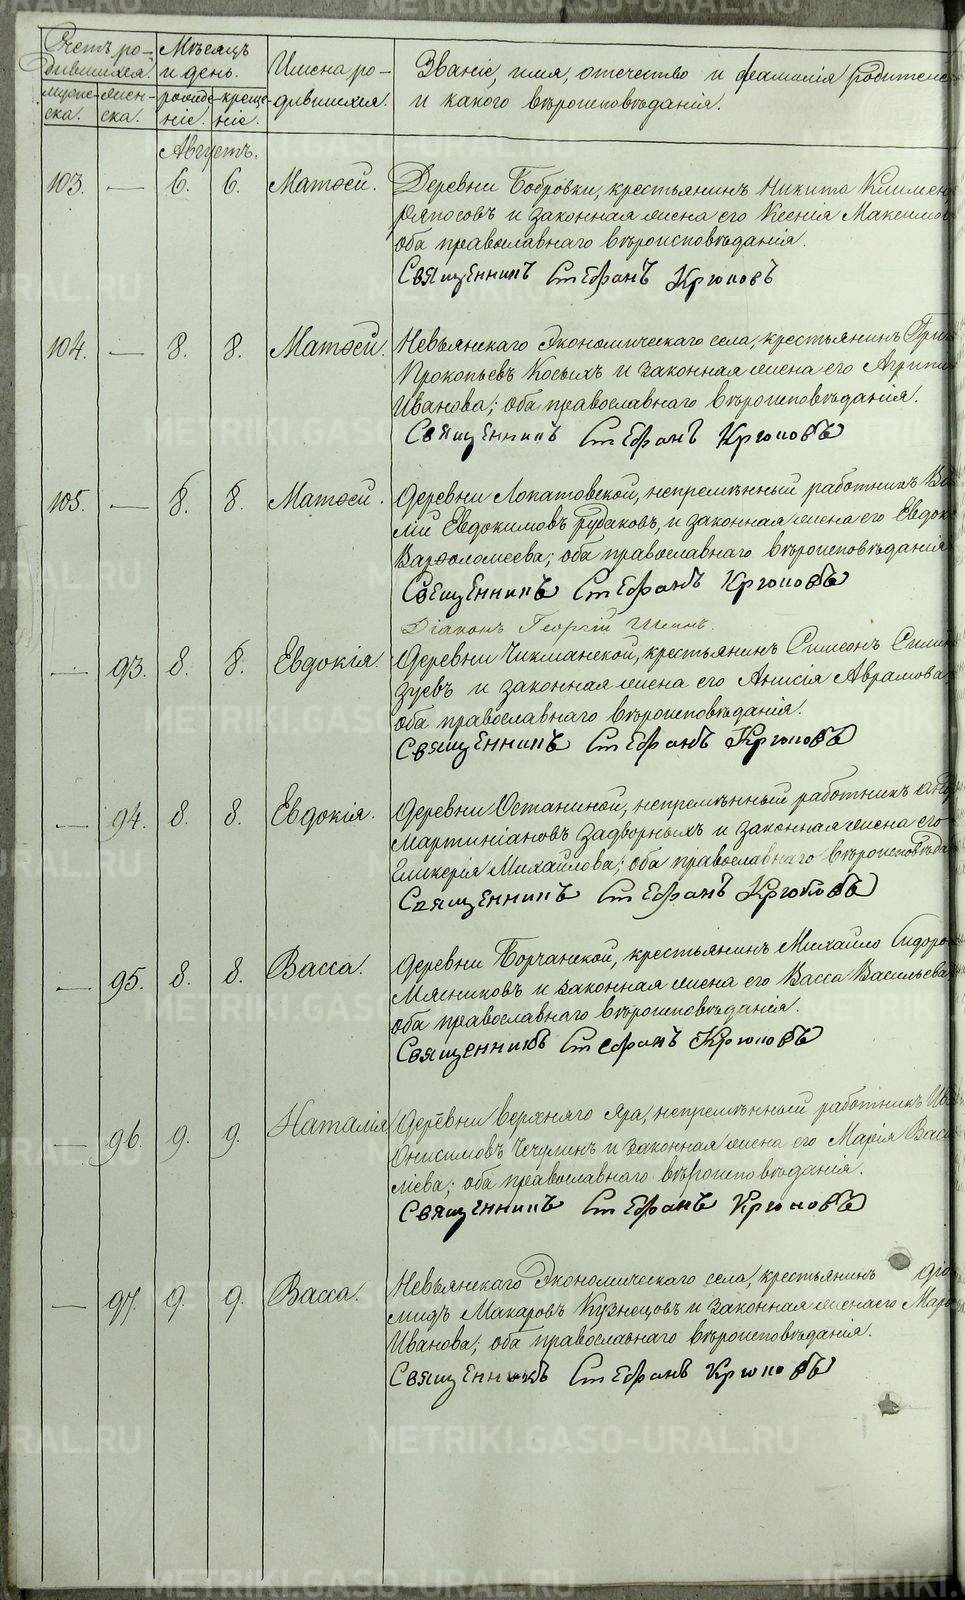 Счетъ родившихся.
Мѣсяцъ и день.
Имена родившихся.
Званіе, имя, отчество и фамилія родителей
и какого вѣроисповѣданія.
мужеска.
женска.
рожденіе.
крещеніе.
Августъ.
103. — 6. 6. Матѳей. Деревни Бобровки, крестьянинъ Никита Климен
Ряпосовъ и законная жена его Ксенія Максимов
оба православнаго вѣроисповѣданія.
Священникъ Стефанъ Крюковъ
104. — 8. 8. Матѳей. Невьянскаго Экономическаго села, крестьянинъ Григ
Прокопьевъ Косыхъ и законная жена его Агрипи
Иванова; оба православнаго вѣроисповѣданія.
Священникъ Стефанъ Крюковъ
105. — 8. 8. Матѳей. Деревни Лопатовской, непремѣнный работникъ Ва
лій Евдокимовъ Рудаковъ, и законная жена его Евдок
Варѳоломеева; оба православнаго вѣроисповѣданія
Священникъ Стефанъ Крюковъ
Діаконъ Георгій
— 93. 8. 8. Евдокія. Деревни Чикманской, крестьянинъ Симеонъ
зуевъ и законная жена его Анисія Аврамова
оба православнаго вѣроисповѣданія.
Священникъ Стефанъ Крюковъ
— 94. 8. 8. Евдокія. Деревни Останиной, непремѣнный работникъ Анд
Мартиніановъ Задворныхъ и законная жена его
Гликерія Михайлова; оба православнаго вѣроисповѣда
Священникъ Стефанъ Крюковъ
— 95. 8. 8. Васса. Деревни Борчанской, крестьянинъ Михайло Сидоро
Мясниковъ и законная жена его Васса Васильева
оба православнаго вѣроисповѣданія.
Священникъ Стефанъ Крюковъ
— 96. 9. 9. Наталія Деревни Верхняго Яра, непремѣнный работникъ Ив
Онисимовъ Чечулинъ и законная жена его Марія Васи
льева; оба православнаго вѣроисповѣданія.
Священникъ Стефанъ Крюковъ
— 97. 9. 9. Васса. Невьянскаго Экономическаго села, крестьянинъ
мидъ Макаровъ Кузнецовъ и законная жена его Мар
Иванова; оба православнаго вѣроисповѣданія.
Священникъ Стефанъ Крюковъ
METRIKI.GASO-URAL.RU